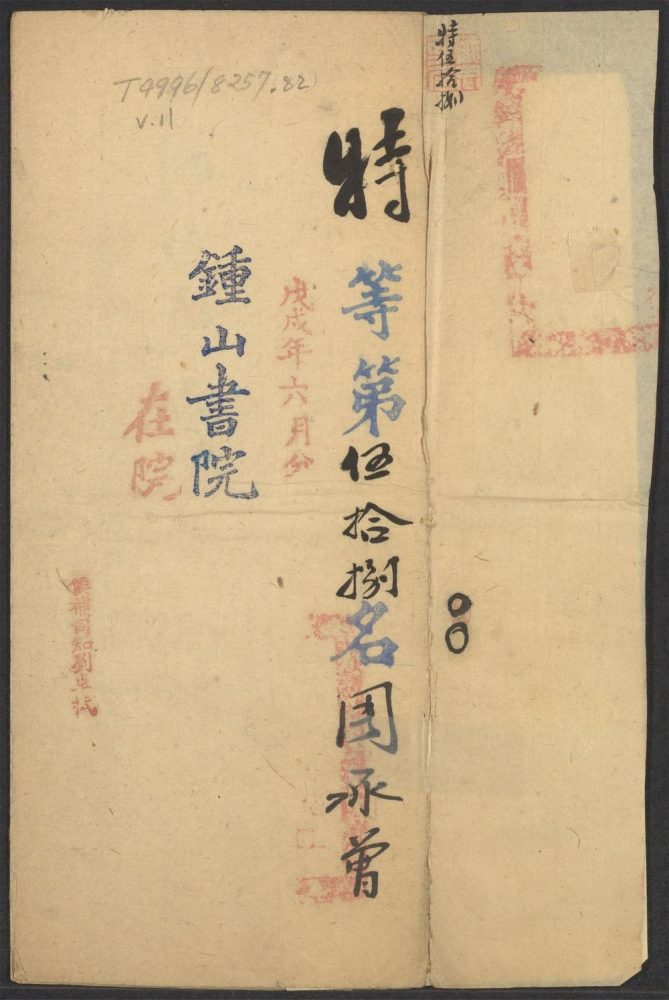 特伍拾捌
T4996/8257.82
v.11
特等第伍拾捌名周承曾
戊戌年六月分
鍾山書院
在院
候補同知劉